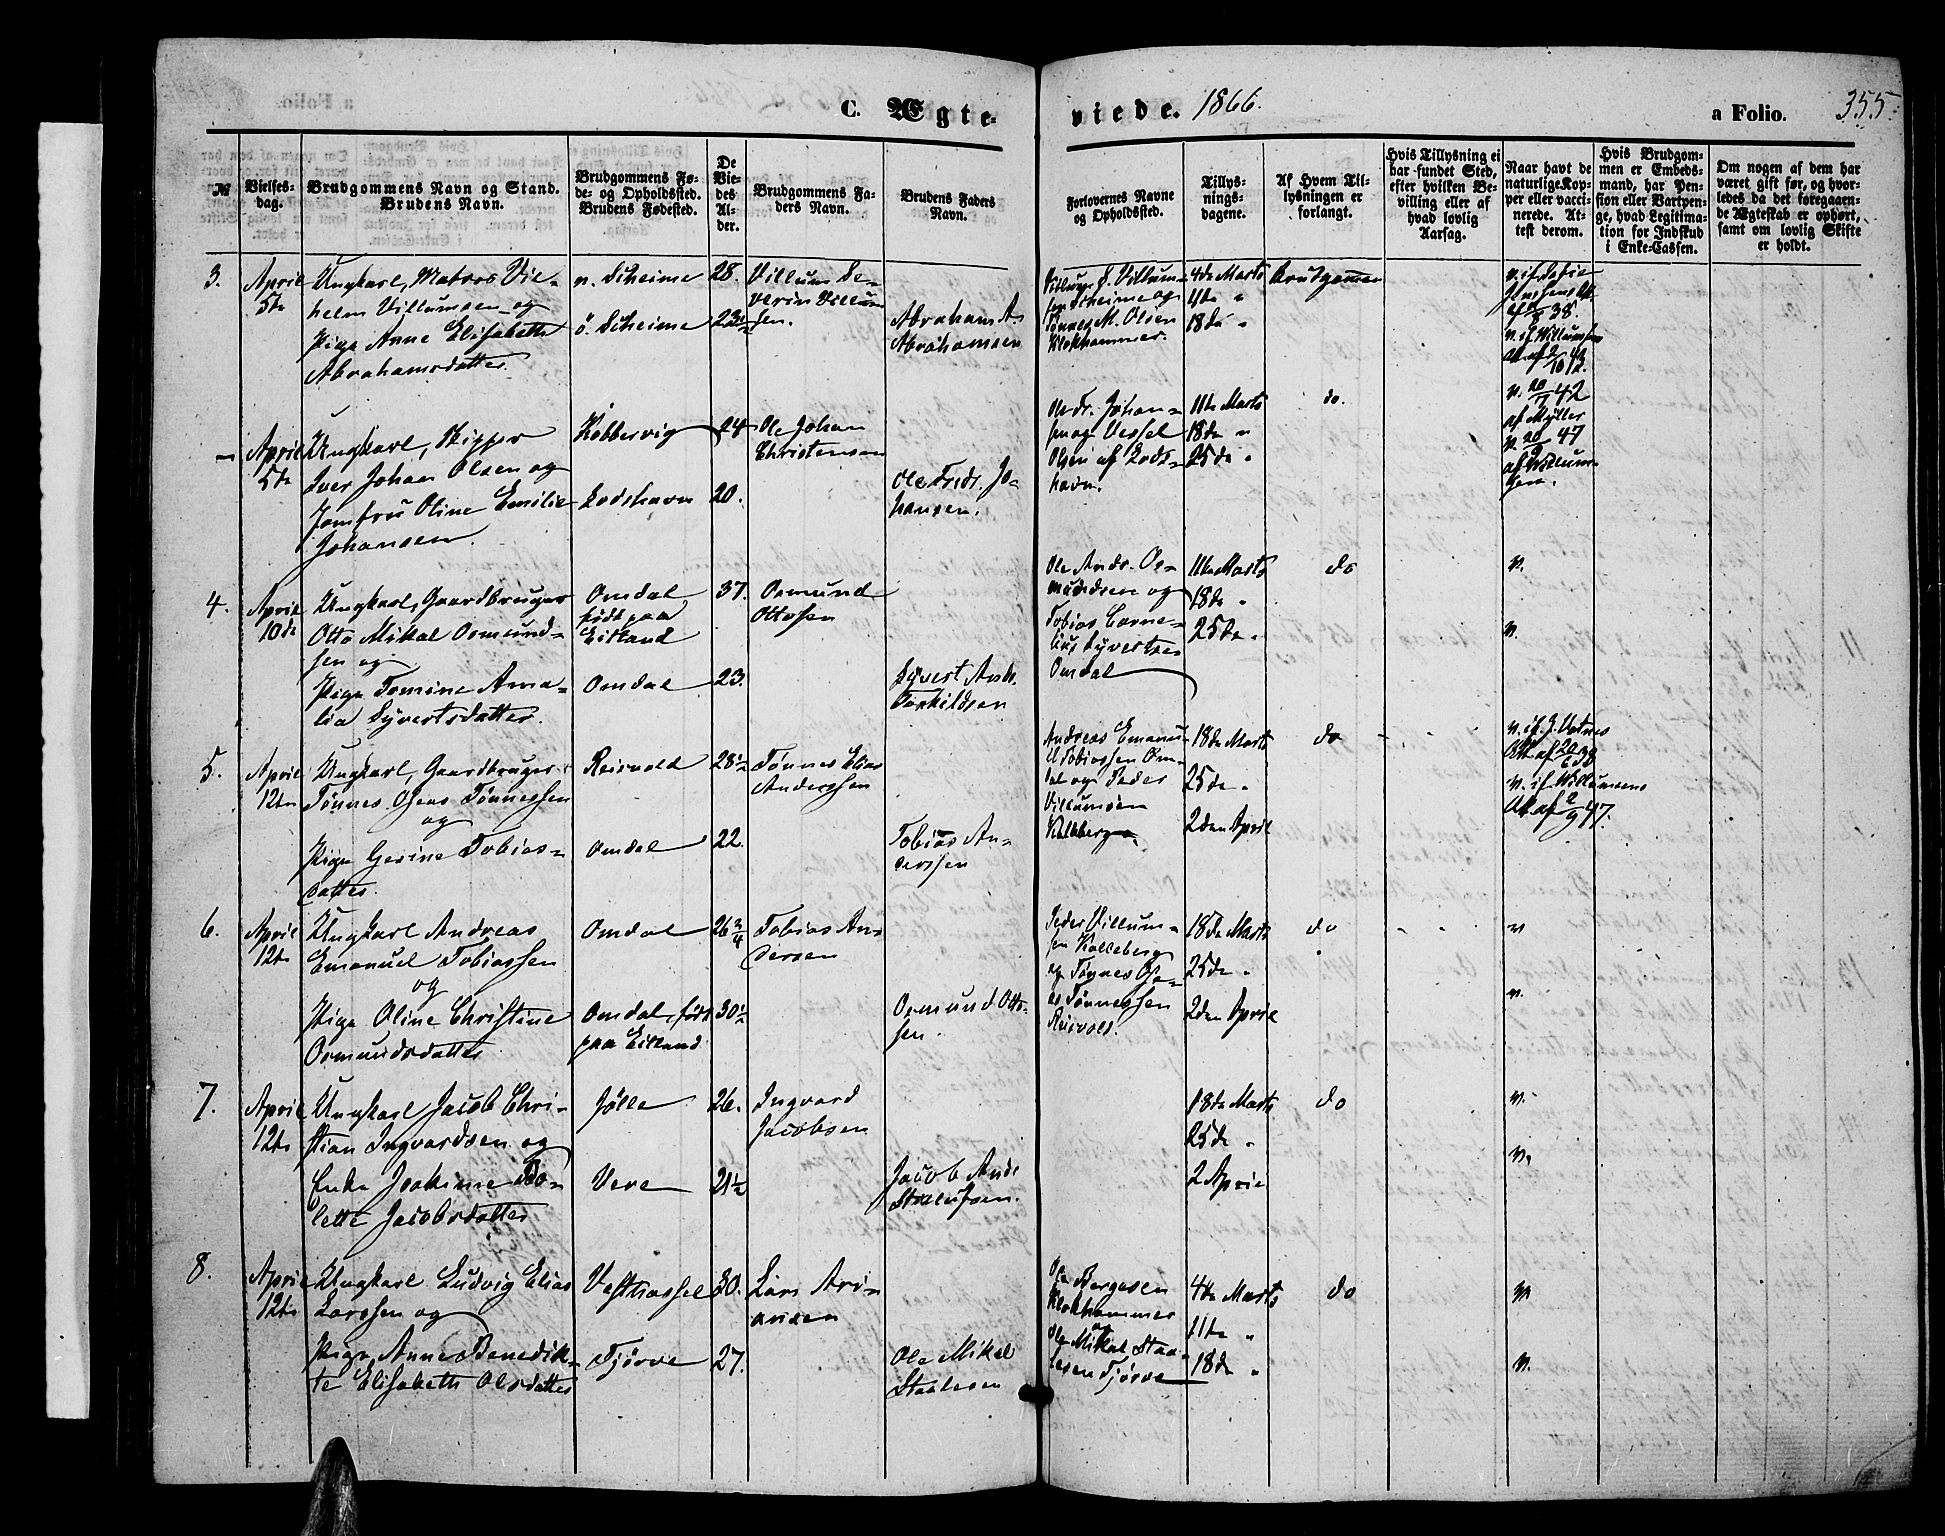 C. Ægte-
viede. 1866.
a Folio. 355.
№
Vielses-
dag.
Brudgommens Navn og Stand.
Brudens Navn.
Brudgommens Fø-
de- og Opholdssted.
Brudens Fødested.
De
Vie-
des
Al-
der.
Brudgommens Fa-
ders Navn.
Brudens Faders
Navn.
Forlovernes Navne
og Opholdssted.
Tillys-
nings-
dagene.
Af Hvem Til-
lysningen er
forlangt.
Hvis Tillysning ei
har fundet Sted,
efter hvilken Be-
villing eller af
hvad lovlig
Aarsag.
Naar havt de
naturlige Kop-
per eller vacci-
nerede. At-
test derom.
Hvis Brudgom-
men er Embeds-
mand, har Pen-
sion eller Vartpen-
ge, hvad Legitima-
tion for Indskud
i Enke-Cassen.
Om nogen af dem har
været gift før, og hvor-
ledes da det foregaaen-
de Ægteskab er ophørt,
samt om lovlig Skifte
er holdt.
3.
April
5te
Ungkarl, Matros Vil-
helm Villumsen og
Pige Anne Elisabeth
Abrahamsdatter
n. Scheime
ö. Scheime
28.
23½
Villum Se-
verin Villum
sen.
Abraham A.
Abrahamsen
Villum S. Villum-
sen Scheime og
Tønnes M. Olsen
Klokhammer.
4de Marts
11te "
18de "
Brudgommen
–
April
5te
Ungkarl, Skipper
Iver Johan Olsen og
Jomfru Oline Emilie
Johansen
Kobbervig
Lodshavn
24
20.
Ole Johan
Christensen
Ole Fredr. Jo-
hansen.
Ole Fr. Johan-
sen og Vessel
Olsen af Lods-
havn.
11te Marts
18de "
25de "
do.
v. 20/7 42
af Møller
v. 20/9 47
af Willum-
sen.
4.
April
10de
Ungkarl, Gaardbruger
Otto Mikal Osmund-
sen og
Pige Tomine Ama-
lia Syvertsdatter.
Omdal
født paa
Eitland
Omdal
37.
23.
Osmund
Ottosen
Syvert Andr.
Torkildsen
Ole Andr. Os-
mundsen og
Tobias Corne-
lius Syvertsen
Omdal
11te Marts
18de "
25de "
do
v.
v.
5.
April
12te
Ungkarl, Gaardbruger
Tønnes Oseas Tønnessen
og
Pige Gerine Tobias-
datter.
Reisvold
Omdal
28½
22.
Tønnes Elias
Anderssen
Tobias An-
derssen
Andreas Emanu-
el Tobiassen Om-
dal og Peder
Villumsen
Kalleberg
18de Marts
25de "
2den April
do
v. if. Willumsens
Att. af 2/9 47.
6.
April
12te
Ungkarl Andreas
Emanuel Tobiassen
og
Pige Oline Christine
Osmundsdatter
Omdal
Omdal, født
paa Eitland
26¾
30½
Tobias An-
dersen
Osmund Otto-
sen.
Peder Villum-
sen Kalleberg
og Tønnes Ose-
as Tønnessen
Reisvold.
18de Marts
25de "
2den April
do
v
v.
7.
April
12te
Ungkarl Jacob Chri-
stian Ingvardsen og
Enke Joakime Bo-
lette Jacobsdatter
Jølle
Vere
26.
21½
Ingvard
Jacobsen
Jacob Andr.
Staalesen.
18de Marts
25de "
2 April
do
v.
v.
8.
April
12te
Ungkarl Ludvig Elias
Larssen og
Pige Anne Benedik-
te Elisabeth Olsdatter
Vesthassel
Tjørve
30.
27.
Lars Ari-
ansen
Ole Mikal
Staalesen
Ole Børgesen
Klokhammer
og
Ole Mikal Staa-
lesen Tjørve
4de Marts
11te "
18de "
do
v
v.